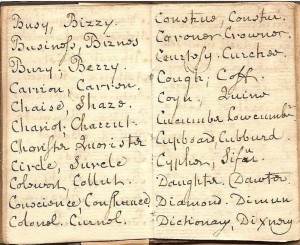 Busy, Bizzy.
Business, Biznes
Bury, Berry.
Carrion, Carren.
Chaise, Shaze.
Chariot, Charrut.
Chorister Quorister
Circle, Surcle
Colewort, Collut.
Conscience,
Colonel. Curnol.
Construe, Constur.
Coroner Crowner.
Courtesy. Curchee.
Cough, Coff.
Coyn, Quine
Cucumber Cowcumber
Cupboard, Cubburd.
Cypher, Sifar
Daughter. Dawter
Diamond. Dimun
Dictionary, Dixnery